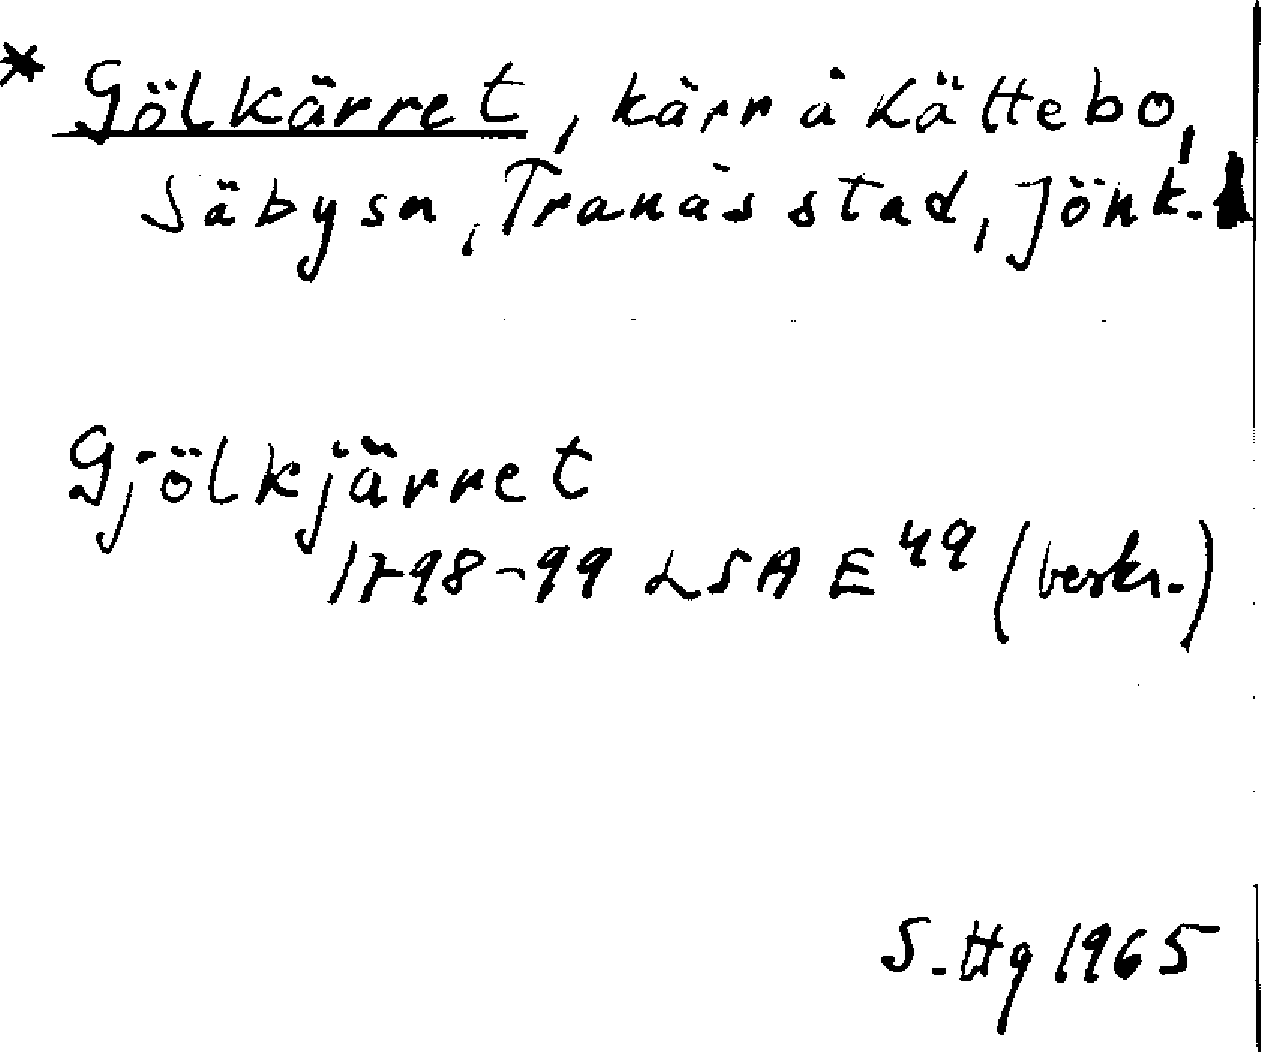 * Gölkärret, kärr å Kättebo,
Säby sn, Tranås stad, Jönk. l
Gjölkjärret
1798-99 LSA E 49 (beskr.)
S. Hg 1965